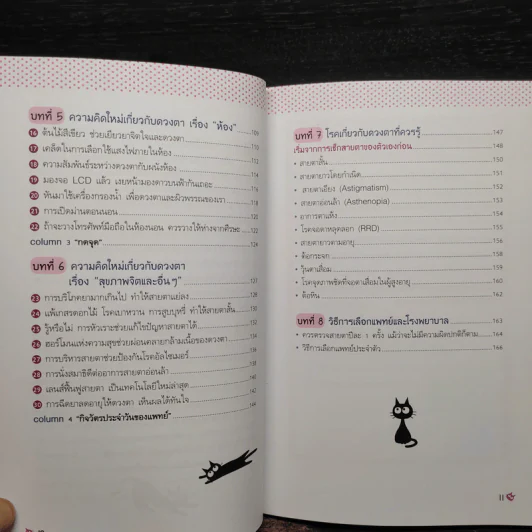 บทที่ 5 ความคิดใหม่เกี่ยวกับดวงตา เรื่อง "ห้อง" 109
16 ต้นไม้สีเขียว ช่วยเยียวยาจิตใจและดวงตา 110
17 เคล็ดในการเลือกใช้แสงไฟภายในห้อง 112
18 ความสัมพันธ์ระหว่างดวงตากับผนังห้อง
19 มองจอ LCD แล้ว เงยหน้ามองดาวบนฟ้ากันเถอะ
20 หันมาใช้เครื่องกรองน้ำ เพื่อดวงตาและผิวพรรณของเรา
21 การเปิดม่านตอนนอน 120
22 ถ้าจะวางโทรศัพท์มือถือในห้องนอน ควรวางให้ห่างจากศีรษะ 122
column 3 "กดจุด" 124
บทที่ 6 ความคิดใหม่เกี่ยวกับดวงตา
เรื่อง "สุขภาพจิตและอื่นๆ" 127
23 การบริโภคยามากเกินไป ทำให้สายตาแย่ลง 128
24 แพ้เกสรดอกไม้ โรคเบาหวาน การสูบบุหรี่ ทำให้สายตาสั้น
25 รู้หรือไม่ การหัวเราะช่วยแก้ไขปัญหาสายตาได้
26 ฮอร์โมนแห่งความสุขช่วยผ่อนคลายกล้ามเนื้อของดวงตา
27 การบริหารสายตาช่วยป้องกันโรคอัลไซเมอร์
28 การนั่งสมาธิดีต่ออาการสายตาอ่อนล้า
29 เลนส์ฟื้นฟูสายตา เป็นเทคโนโลยีใหม่ล่าสุด
30 การฉีดยาลดอายุให้ดวงตา เห็นผลได้ทันใจ
column 4 "กิจวัตรประจำวันของแพทย์"
บทที่ 7 โรคเกี่ยวกับดวงตาที่ควรรู้ 147
เริ่มจากการเช็กสายตาของตัวเองก่อน 148
• สายตาสั้น 150
• สายตายาวโดยกำเนิด 151
• สายตาเอียง (Astigmatism) 152
• สายตาอ่อนล้า (Asthenopia) 153
• อาการตาแห้ง 154
• โรคจอตาหลุดลอก (RRD) 155
• สายตายาวตามอายุ 156
• ต้อกระจก 157
• วุ้นตาเสื่อม 158
• โรคจุดภาพชัดที่จอตาเสื่อมในผู้สูงอายุ 159
• ต้อหิน 160
บทที่ 8 วิธีการเลือกแพทย์และโรงพยาบาล 163
• ควรตรวจสายตาปีละ 1 ครั้ง แม้ว่าจะไม่มีความผิดปกติก็ตาม 164
• วิธีการเลือกแพทย์ประจำตัว 166
11